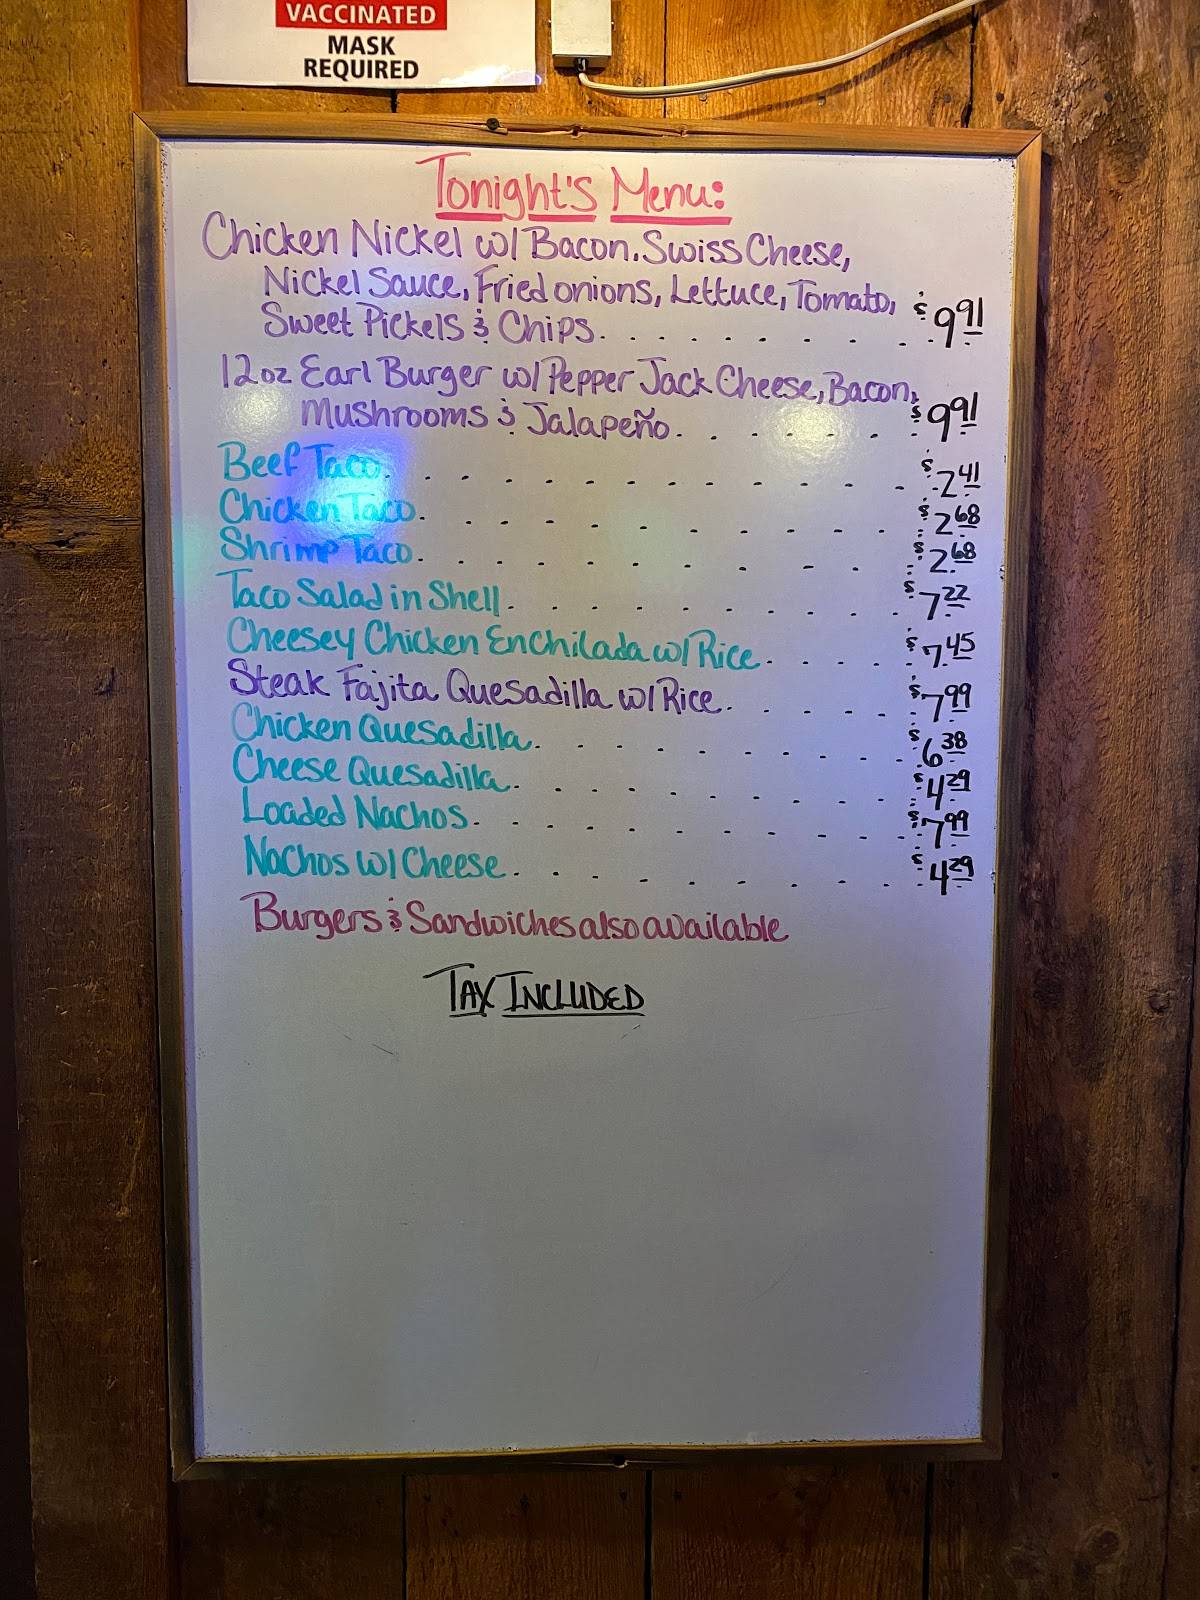 VACCINATED
MASK
REQUIRED
Tonight's Menu:
Chicken Nickel w/ Bacon, Swiss Cheese,
Nickel Sauce, Fried onions, Lettuce, Tomato,
Sweet Pickels & Chips. . . . . . . . . $9.91
12oz Earl Burger w/ Pepper Jack Cheese, Bacon,
Mushrooms & Jalapeño. . . . . . . . $9.91
Beef Taco. . . . . . . . . . . . . . $2.41
Chicken Taco. . . . . . . . . . . . $2.68
Shrimp Taco. . . . . . . . . . . . $2.68
Taco Salad in Shell. . . . . . . . . . $7.22
Cheesey Chicken Enchilada w/ Rice. . . . . $7.45
Steak Fajita Quesadilla w/ Rice. . . . . . $7.99
Chicken Quesadilla. . . . . . . . . . $6.38
Cheese Quesadilla. . . . . . . . . . $4.29
Loaded Nachos. . . . . . . . . . . $7.99
Nachos w/ Cheese. . . . . . . . . . $4.29
Burgers & Sandwiches also available
TAX INCLUDED